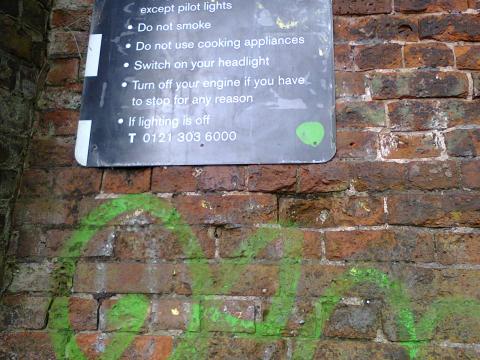 except pilot lights
• Do not smoke
• Do not use cooking appliances
• Switch on your headlight
• Turn off your engine if you have
to stop for any reason
• If lighting is off
T 0121 303 6000